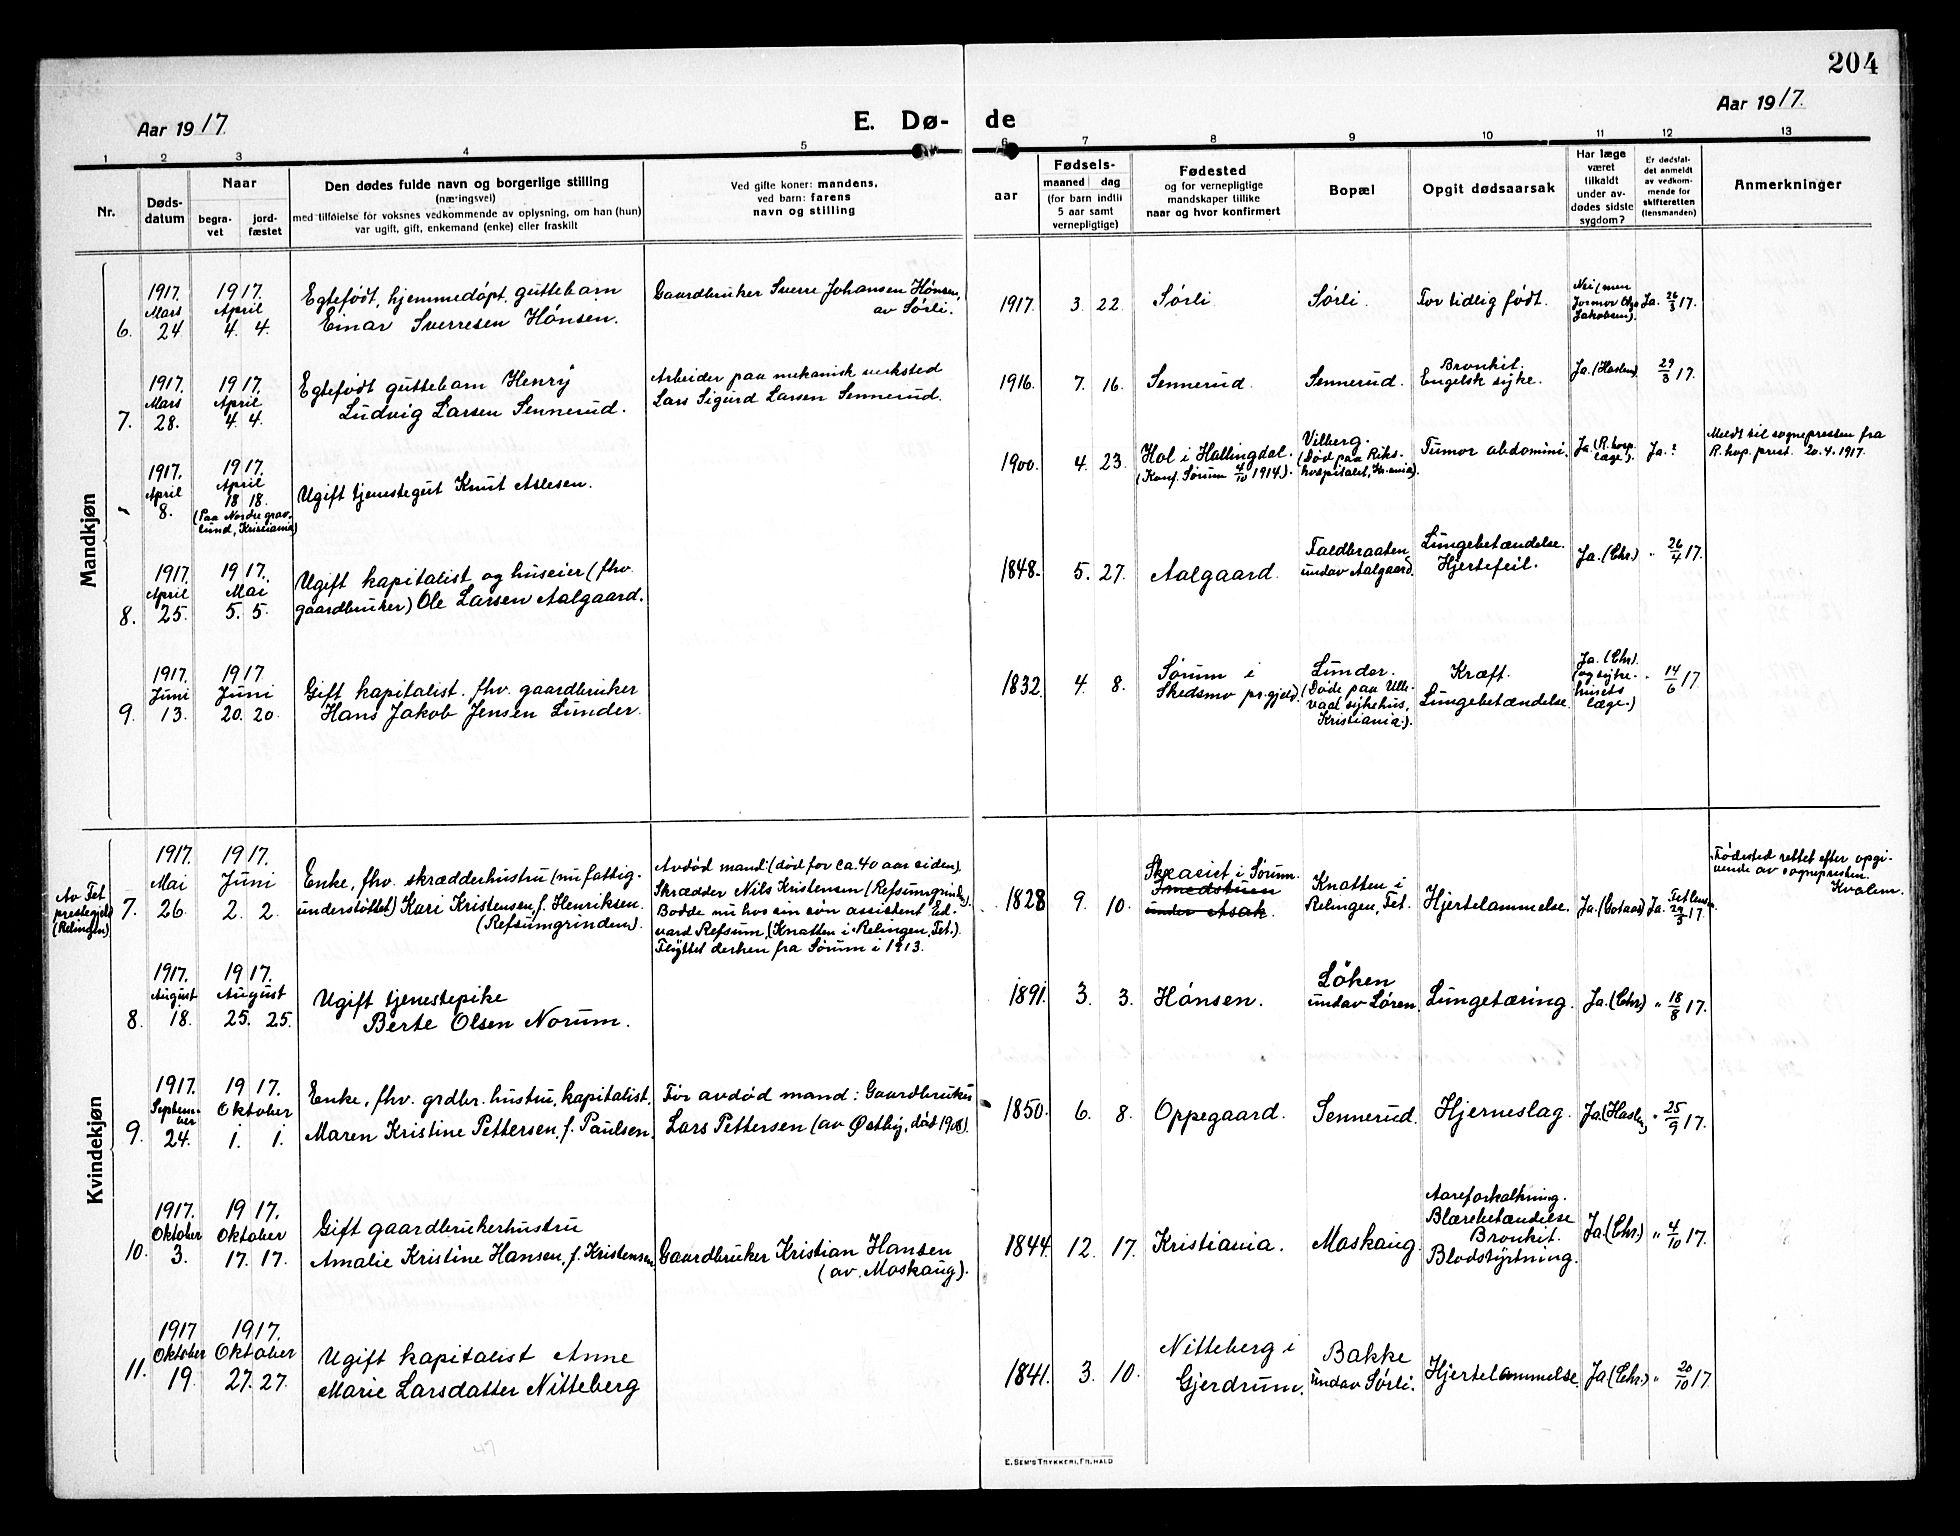 204
Aar 1917.
E. Dø-
de
Aar 1917.
1 2 3 4 5 6 7 8 9 10 11 12 13
Nr.
Døds-
datum
Naar
begra-
vet
jord-
fæstet
Den dødes fulde navn og borgerlige stilling
(næringsvei)
med tilføielse for voksnes vedkommende av oplysning, om han (hun)
var ugift, gift, enkemand (enke) eller fraskilt
Ved gifte koner: mandens,
ved barn: farens
navn og stilling
aar
Fødsels-
maaned dag
(for barn indtil
5 aar samt
vernepligtige)
Fødested
og for vernepligtige
mandskaper tillike
naar og hvor konfirmert
Bopæl
Opgit dødsaarsak
Har læge
været
tilkaldt
under av-
dødes sidste
sygdom?
Er dødsfal-
det anmeldt
av vedkom-
mende for
skifteretten
(lensmanden)
Anmerkninger
Mandkjøn
6.
1917.
Mars
24
1917.
April
4. 4.
Egtefødt, hjemmedøpt, guttebarn
Einar Sverresen Hønsen.
Gaardbruker Sverre Johansen Hønsen,
av Sørli.
1917. 3. 22.
Sørli.
Sørli.
For tidlig født.
Nei (men
Jormor Chr.
Jakobsen).
Ja. 26/3 17.
7.
1917.
Mars
28.
1917.
April
4. 4.
Egtefødt guttebarn Henry
Ludvig Larsen Sennerud.
Arbeider paa mekanisk verksted
Lars Sigurd Larsen Sennerud.
1916. 7. 16.
Sennerud.
Sennerud.
Bronkit.
Engelsk syke.
Ja. (Haslem)
29/3 17.
1917.
April
8.
1917.
April
18 18.
(Paa Nordre grav-
lund, Kristiania)
Ugift tjenestegut Knut Aslesen.
1900. 4. 23.
Hol i Hallingdal.
(Konf. Sørum 4/10 1914).
Vilberg.
(Død paa Riks-
hospitalet, Kr.ania).
Tumor abdomini.
Ja. (R.hosp.
læge).
Ja. ?
Meldt til sognepresten fra
R.hop. prest. 20.4.1917.
8.
1917.
April
25.
1917.
Mai
5. 5.
Ugift kapitalist og huseier (fhv.
gaardbruker) Ole Larsen Aalgaard.
1848. 5. 27.
Aalgaard.
Faldbraaten
undav Aalgaard.
Lungebetændelse.
Hjertefeil.
Ja. (Chr.)
" 26/4 17.
9.
1917.
Juni
13.
1917
Juni
20. 20.
Gift kapitalist. fhv. gaardbruker
Hans Jakob Jensen Lunder.
1832. 4. 8.
Sørum i
Skedsmo pr.gjeld.
Lunder.
(Døde paa Ulle-
vaal sykehus,
Kristiania.).
Kræft.
Lungebetændelse.
Ja. (Chr).
(og syke-
husets
læge.)
" 14/6 17.
Kvindekjøn
Av Fet
prestegjeld
(Relingen)
7.
1917.
Mai
26.
1917.
Juni
2. 2.
Enke, fhv. skrædderhustru (nu fattig-
understøttet) Kari Kristensen, f. Henriksen.
(Refsumgrinden).
Avdød mand: (død for ca. 40 aar siden).
Skrædder Nils Kristensen (Refsumgrinden).
Bodde nu hos sin søn assistent Ed-
vard Refsum, (Knatten i Relingen, Fet.).
Flyttet derhen fra Sørum i 1913.
1828 9. 10.
Skeaeiet i Sørum.
Smedstuen
under Asak.
Knatten i
Relingen, Fet.
Hjertelammelse.
Ja. (Cotaas)
Ja. Fet Lensm.
29/5 17.
Fødested rettet efter opgi-
vende av sognepresten.
Kvalem.
8.
1917.
August
18.
1917.
August
25. 25.
Ugift tjenestepike
Berte Olsen Norum.
1891. 3. 3.
Hønsen.
Løken
undav Løren.
Lungetæring.
Ja. (Chr)
" 18/8 17.
9.
1917.
Septem-
ber
24.
1917.
Oktober
1. 1.
Enke, fhv. grdbr. hustru, kapitalist.
Maren Kristine Pettersen, f. Paulsen.
For avdød mand: Gaardbruker
Lars Pettersen (av Østby, død 1908).
1850. 6. 8.
Oppegaard.
Sennerud.
Hjerneslag.
Ja. (Haslem)
" 25/9 17.
10.
1917.
Oktober
3.
1917.
Oktober
17. 17.
Gift gaardbrukerhustru
Amalie Kristine Hansen, f. Kristensen
Gaardbruker Kristian Hansen
(av. Moskaug).
1844. 12. 17.
Kristiania.
Moskaug.
Aareforkalkning.
Blærebetændelse
Bronkit.
Blodstyrtning.
Ja. (Chr.)
" 4/10 17.
11.
1917
Oktober
19.
1917.
Oktober
27. 27.
Ugift kapitalist Anne
Marie Larsdatter Nitteberg
1841. 3. 10.
Nitteberg i
Gjerdrum.
Bakke
undav Sørli.
Hjertelammelse.
Ja (Chr.)
" 20/10 17.
47
E. SEM'S TRYKKERI, FR.HALD